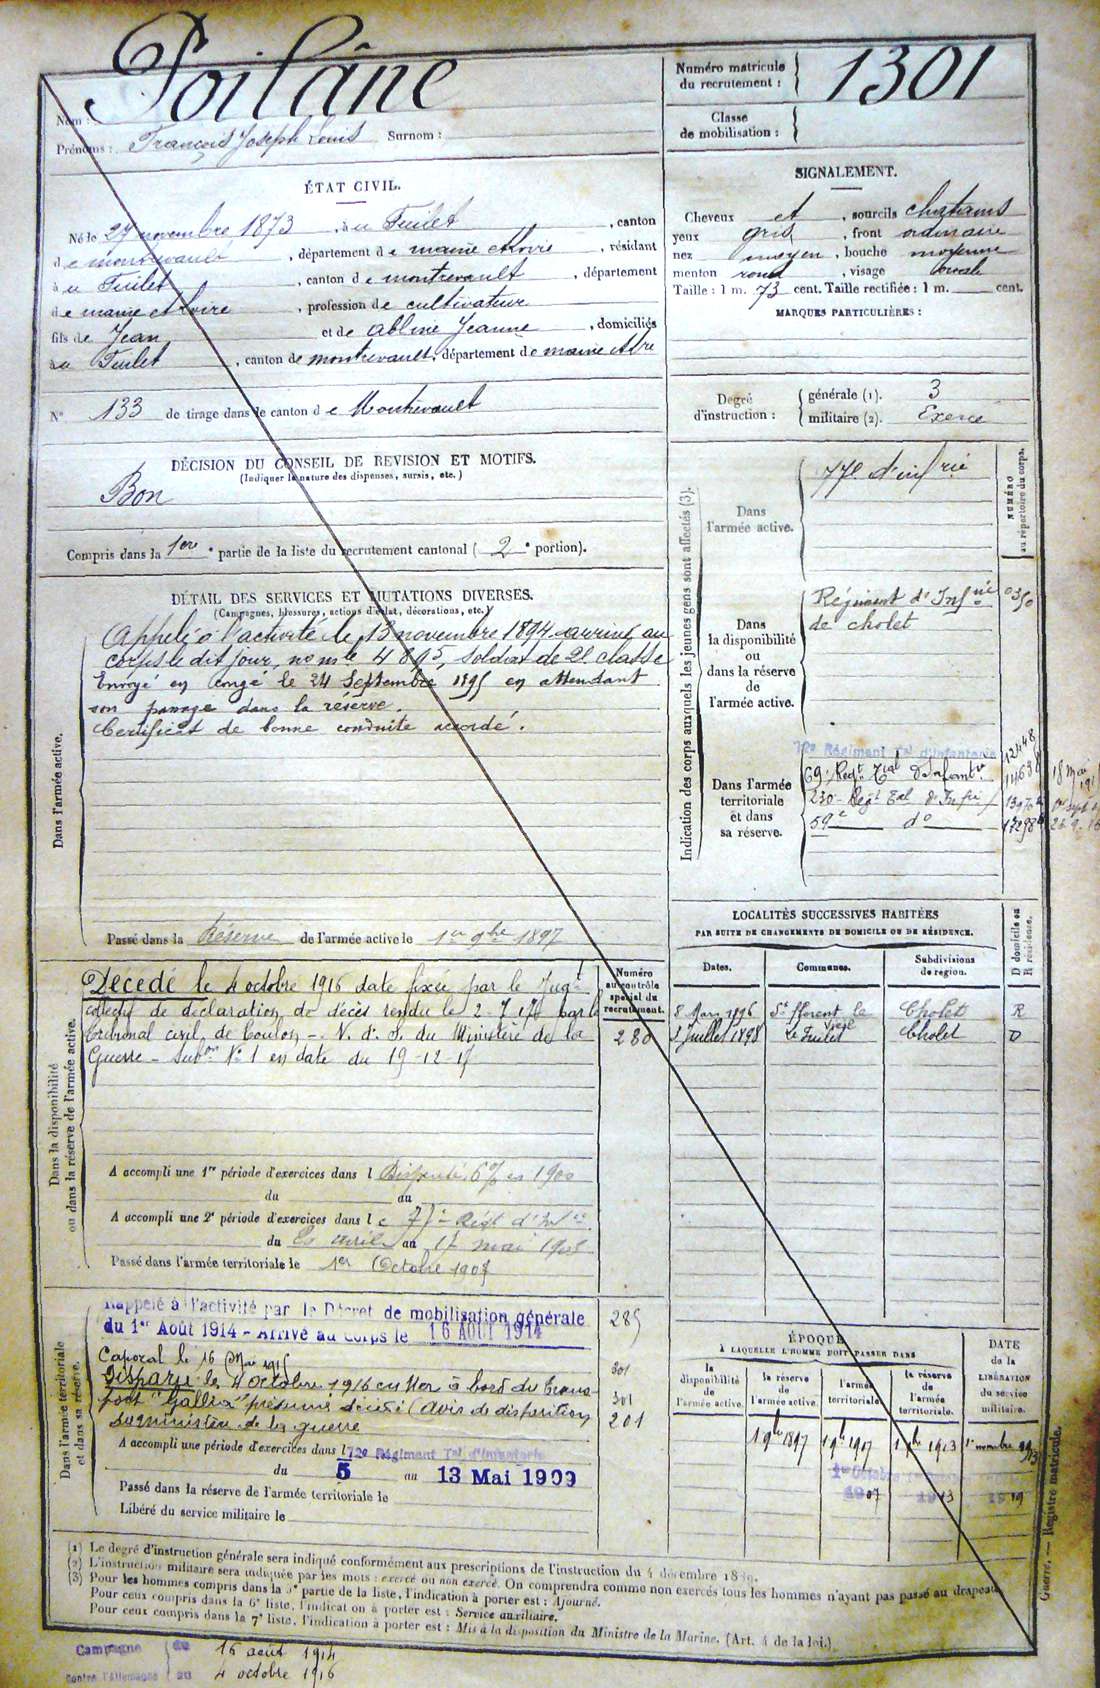 Poilâne
Nom :
Prénoms : François Joseph Louis Surnom :
Numéro matricule du recrutement : 1301
Classe de mobilisation :
ÉTAT CIVIL.
Né le 27 novembre 1873, à au Fuilet, canton
de montrevault, département de maine et Loire, résidant
à au Fuilet, canton de montrevault, département
de maine et Loire, profession de cultivateur
fils de Jean et de Abline Jeanne, domiciliés
à au Fuilet, canton de montrevault, département de maine et Loire
N° 133 de tirage dans le canton de Montrevault
SIGNALEMENT.
Cheveux et, sourcils chatains
yeux gris, front ordinaire
nez moyen, bouche moyenne
menton rond, visage ovale
Taille : 1 m. 73 cent. Taille rectifiée : 1 m. cent.
MARQUES PARTICULIÈRES :
Degré d'instruction :
générale (1). 3
militaire (2). Exercé
DÉCISION DU CONSEIL DE REVISION ET MOTIFS.
(Indiquer la nature des dispenses, sursis, etc.)
Bon
Compris dans la 1ère partie de la liste du recrutement cantonal (2e portion).
DÉTAIL DES SERVICES ET MUTATIONS DIVERSES.
(Campagnes, blessures, actions d'éclat, décorations, etc.)
Dans l'armée active.
Appelé à l'activité le 13 novembre 1894 arrivé au
corps le dit jour, no mle 4895, soldat de 2e classe
Envoyé en congé le 24 Septembre 1895 en attendant
son passage dans la réserve.
Certificat de bonne conduite accordé.
Passé dans la Réserve de l'armée active le 1er 9bre 1897
Indication des corps auxquels les jeunes gens sont affectés (3).
NUMÉRO au répertoire du corps.
Dans l'armée active.
77e d'infrie
Dans la disponibilité ou dans la réserve de l'armée active.
Régiment d'Infrie
de cholet
Dans l'armée territoriale et dans sa réserve.
72e Régiment Tal d'Infanterie
69e Regt Tial d'Infanterie
230e Regt Tal d'Infrie
59e do
LOCALITÉS SUCCESSIVES HABITÉES
PAR SUITE DE CHANGEMENTS DE DOMICILE OU DE RÉSIDENCE.
D domicile ou R résidence.
Dates. Communes. Subdivisions de région.
8 Mars 1896 St Florent le Vieil Cholet R
3 Juillet 1898 Le Fuilet Cholet D
Dans la disponibilité ou dans la réserve de l'armée active.
Numéro au contrôle spécial du recrutement.
280
Décédé le 4 octobre 1916 date fixée par le Jugt
collectif de déclaration de décès rendu le 2-7-17 par le
tribunal civil de Toulon -. V. d. S. du Ministère de la
Guerre - Subon No 1 en date du 19-12-17
A accompli une 1re période d'exercices dans l Dispensé, en 1900
du au
A accompli une 2e période d'exercices dans le 77e Régt d'Infie
du avril au 17 mai 1903
Passé dans l'armée territoriale le 1er Octobre 1907
Dans l'armée territoriale et dans sa réserve.
Rappelé à l'activité par le Décret de mobilisation générale
du 1er Août 1914 - Arrivé au Corps le 16 AOUT 1914
285
Caporal le 16 Mai 1915
301
Disparu le 4 octobre 1916 en Mer à bord du trans-
301
port "Gallia" présumé décédé (Avis de disparition
201
du ministère de la guerre
A accompli une période d'exercices dans l 72e Régiment Tal d'Infanterie
du 5 au 13 Mai 1909
Passé dans la réserve de l'armée territoriale le
Libéré du service militaire le
ÉPOQUE
À LAQUELLE L'HOMME DOIT PASSER DANS
DATE de la LIBÉRATION du service militaire.
la disponibilité de l'armée active.
la réserve de l'armée active.
l'armée territoriale.
la réserve de l'armée territoriale.
1 9bre 1897 1 9bre 1907 1 9bre 1913 1er novembre 1919
1907 1913 1919
(1) Le degré d'instruction générale sera indiqué conformément aux prescriptions de l'instruction du 4 décembre 1889.
(2) L'instruction militaire sera indiquée par les mots : exercé ou non exercé. On comprendra comme non exercés tous les hommes n'ayant pas passé au drapeau.
(3) Pour les hommes compris dans la 5e partie de la liste, l'indication à porter est : Ajourné.
Pour ceux compris dans la 6e liste, l'indication à porter est : Service auxiliaire.
Pour ceux compris dans la 7e liste, l'indication à porter est : Mis à la disposition du Ministre de la Marine. (Art. 4 de la loi.)
Guerre. — Registre matricule.
Campagne du 16 août 1914
contre l'Allemagne au 4 octobre 1916